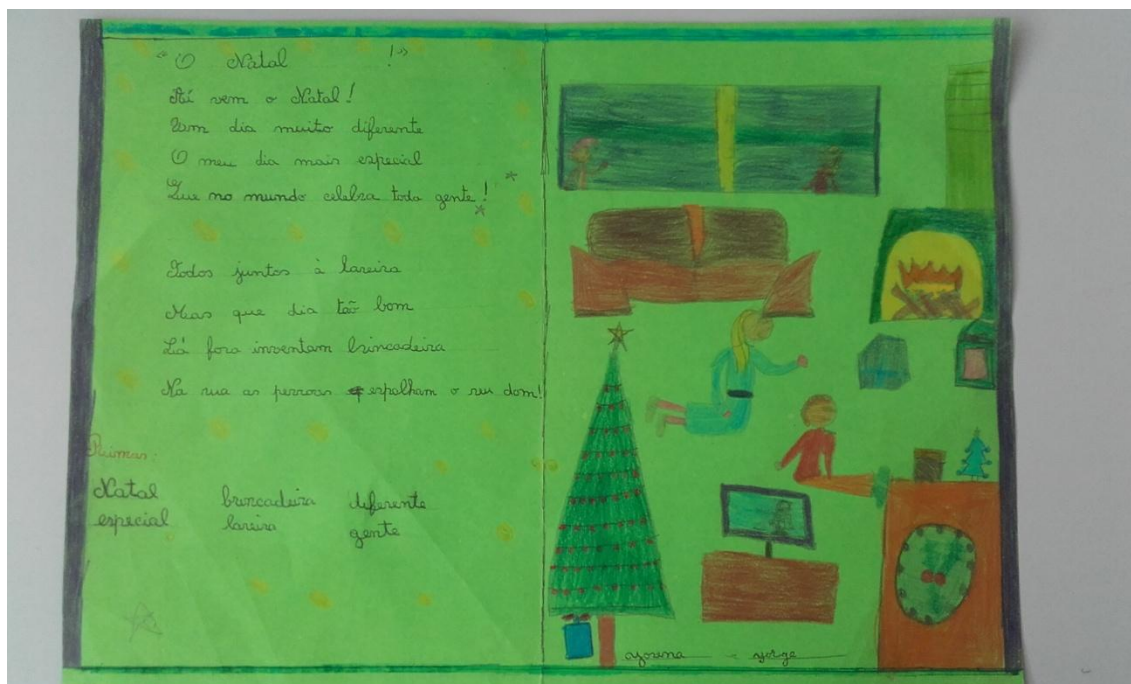 "O Natal !"
Aí vem o Natal!
Um dia muito diferente
O meu dia mais especial
Que no mundo celebra toda gente!
Todos juntos à lareira
Mas que dia tão bom
Lá fora inventam brincadeira
Na rua as pessoas espalham o seu dom!
Rimas:
Natal brincadeira diferente
especial lareira gente
Jorge